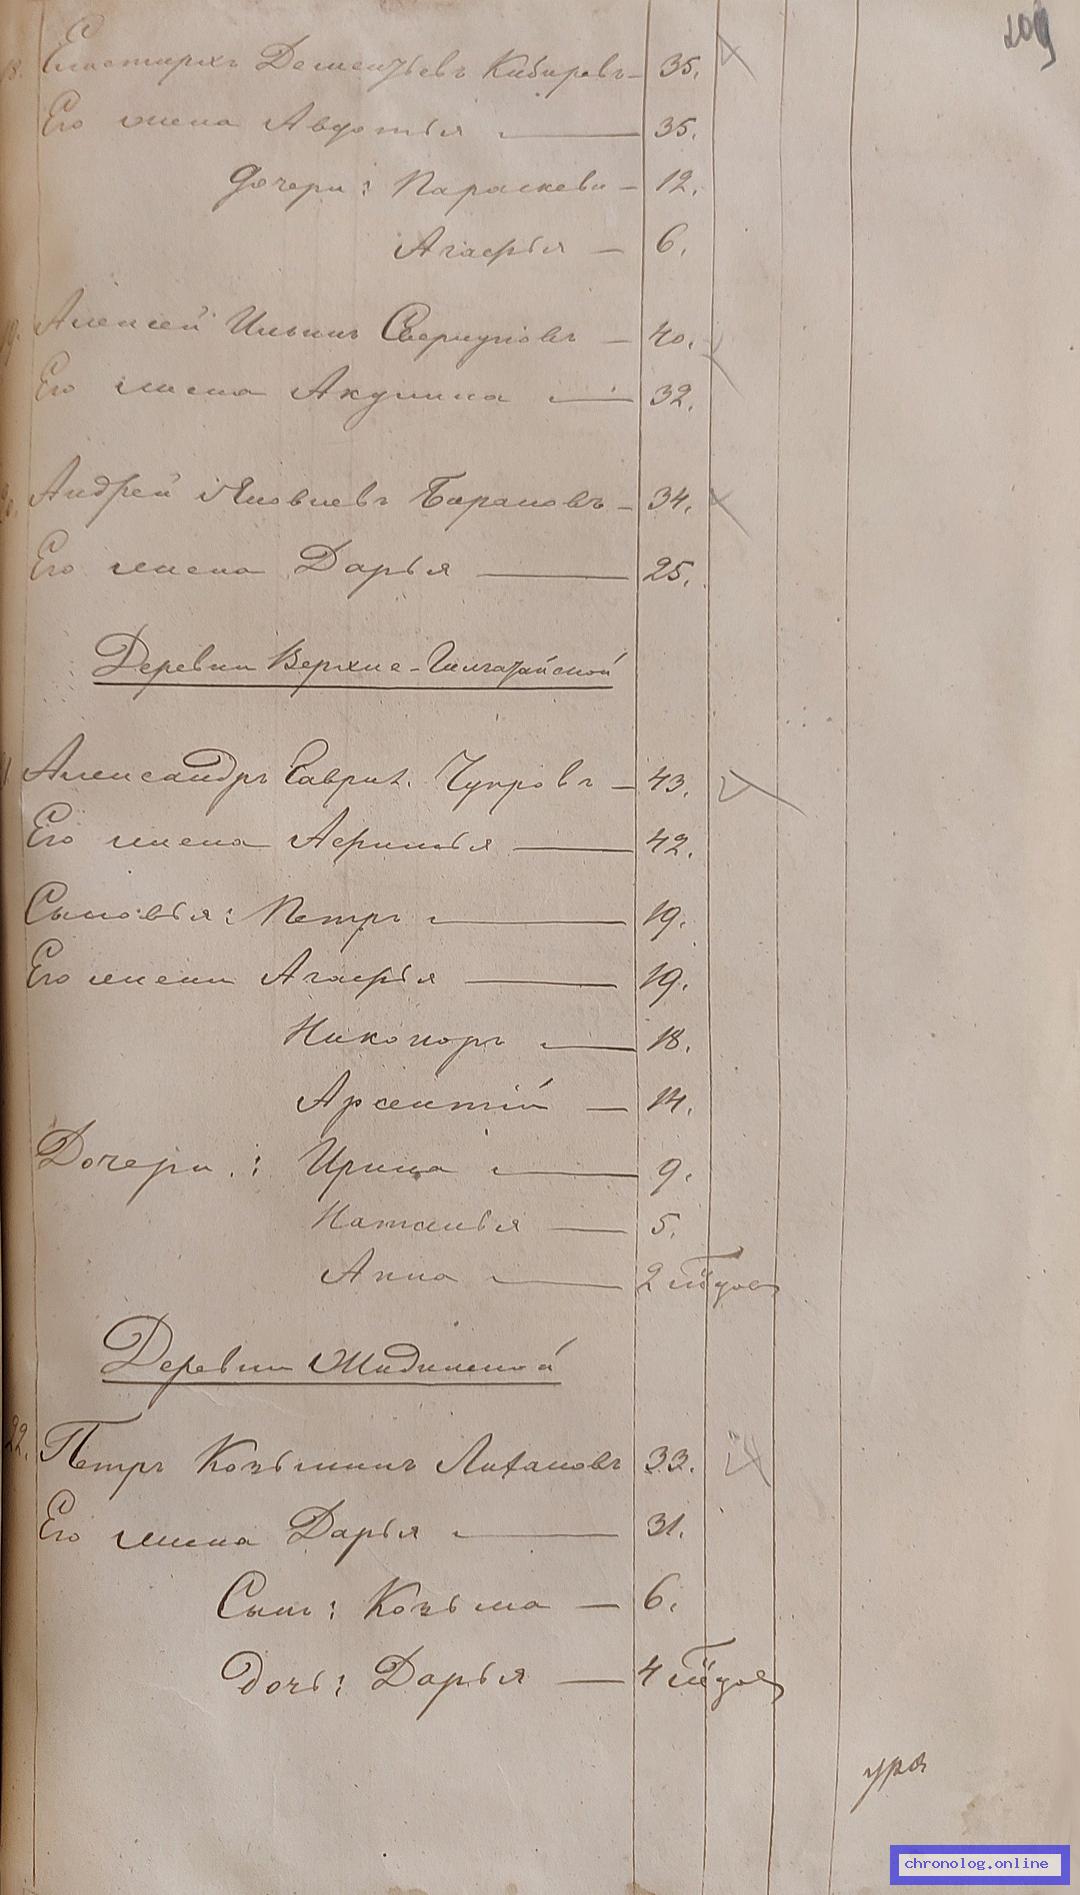 209
18. Дементьевъ Кибиревъ — 35.
Его жена Авдотья — 35.
Дочери: Параскева — 12.
Агафья — 6.
19. Алексей Ильинъ — 40.
Его жена Акулина — 32.
Андрей Яковлевъ Барановъ — 34.
Его жена Дарья — 25.
Деревни Верхне-
Александръ Гаврил. Чупровъ — 43.
Его жена Афимья — 42.
Сыновья: Петръ — 19.
Его жена Агафья — 19.
Никоноръ — 18.
Арсентій — 14.
Дочери: Ирина — 9.
Наталья — 5.
Анна — 2
Деревни Жидинской
22. Петръ Козьминъ Лихановъ 33.
Его жена Дарья — 31.
Сынъ: Козьма — 6.
Дочь: Дарья — 4
chronolog.online